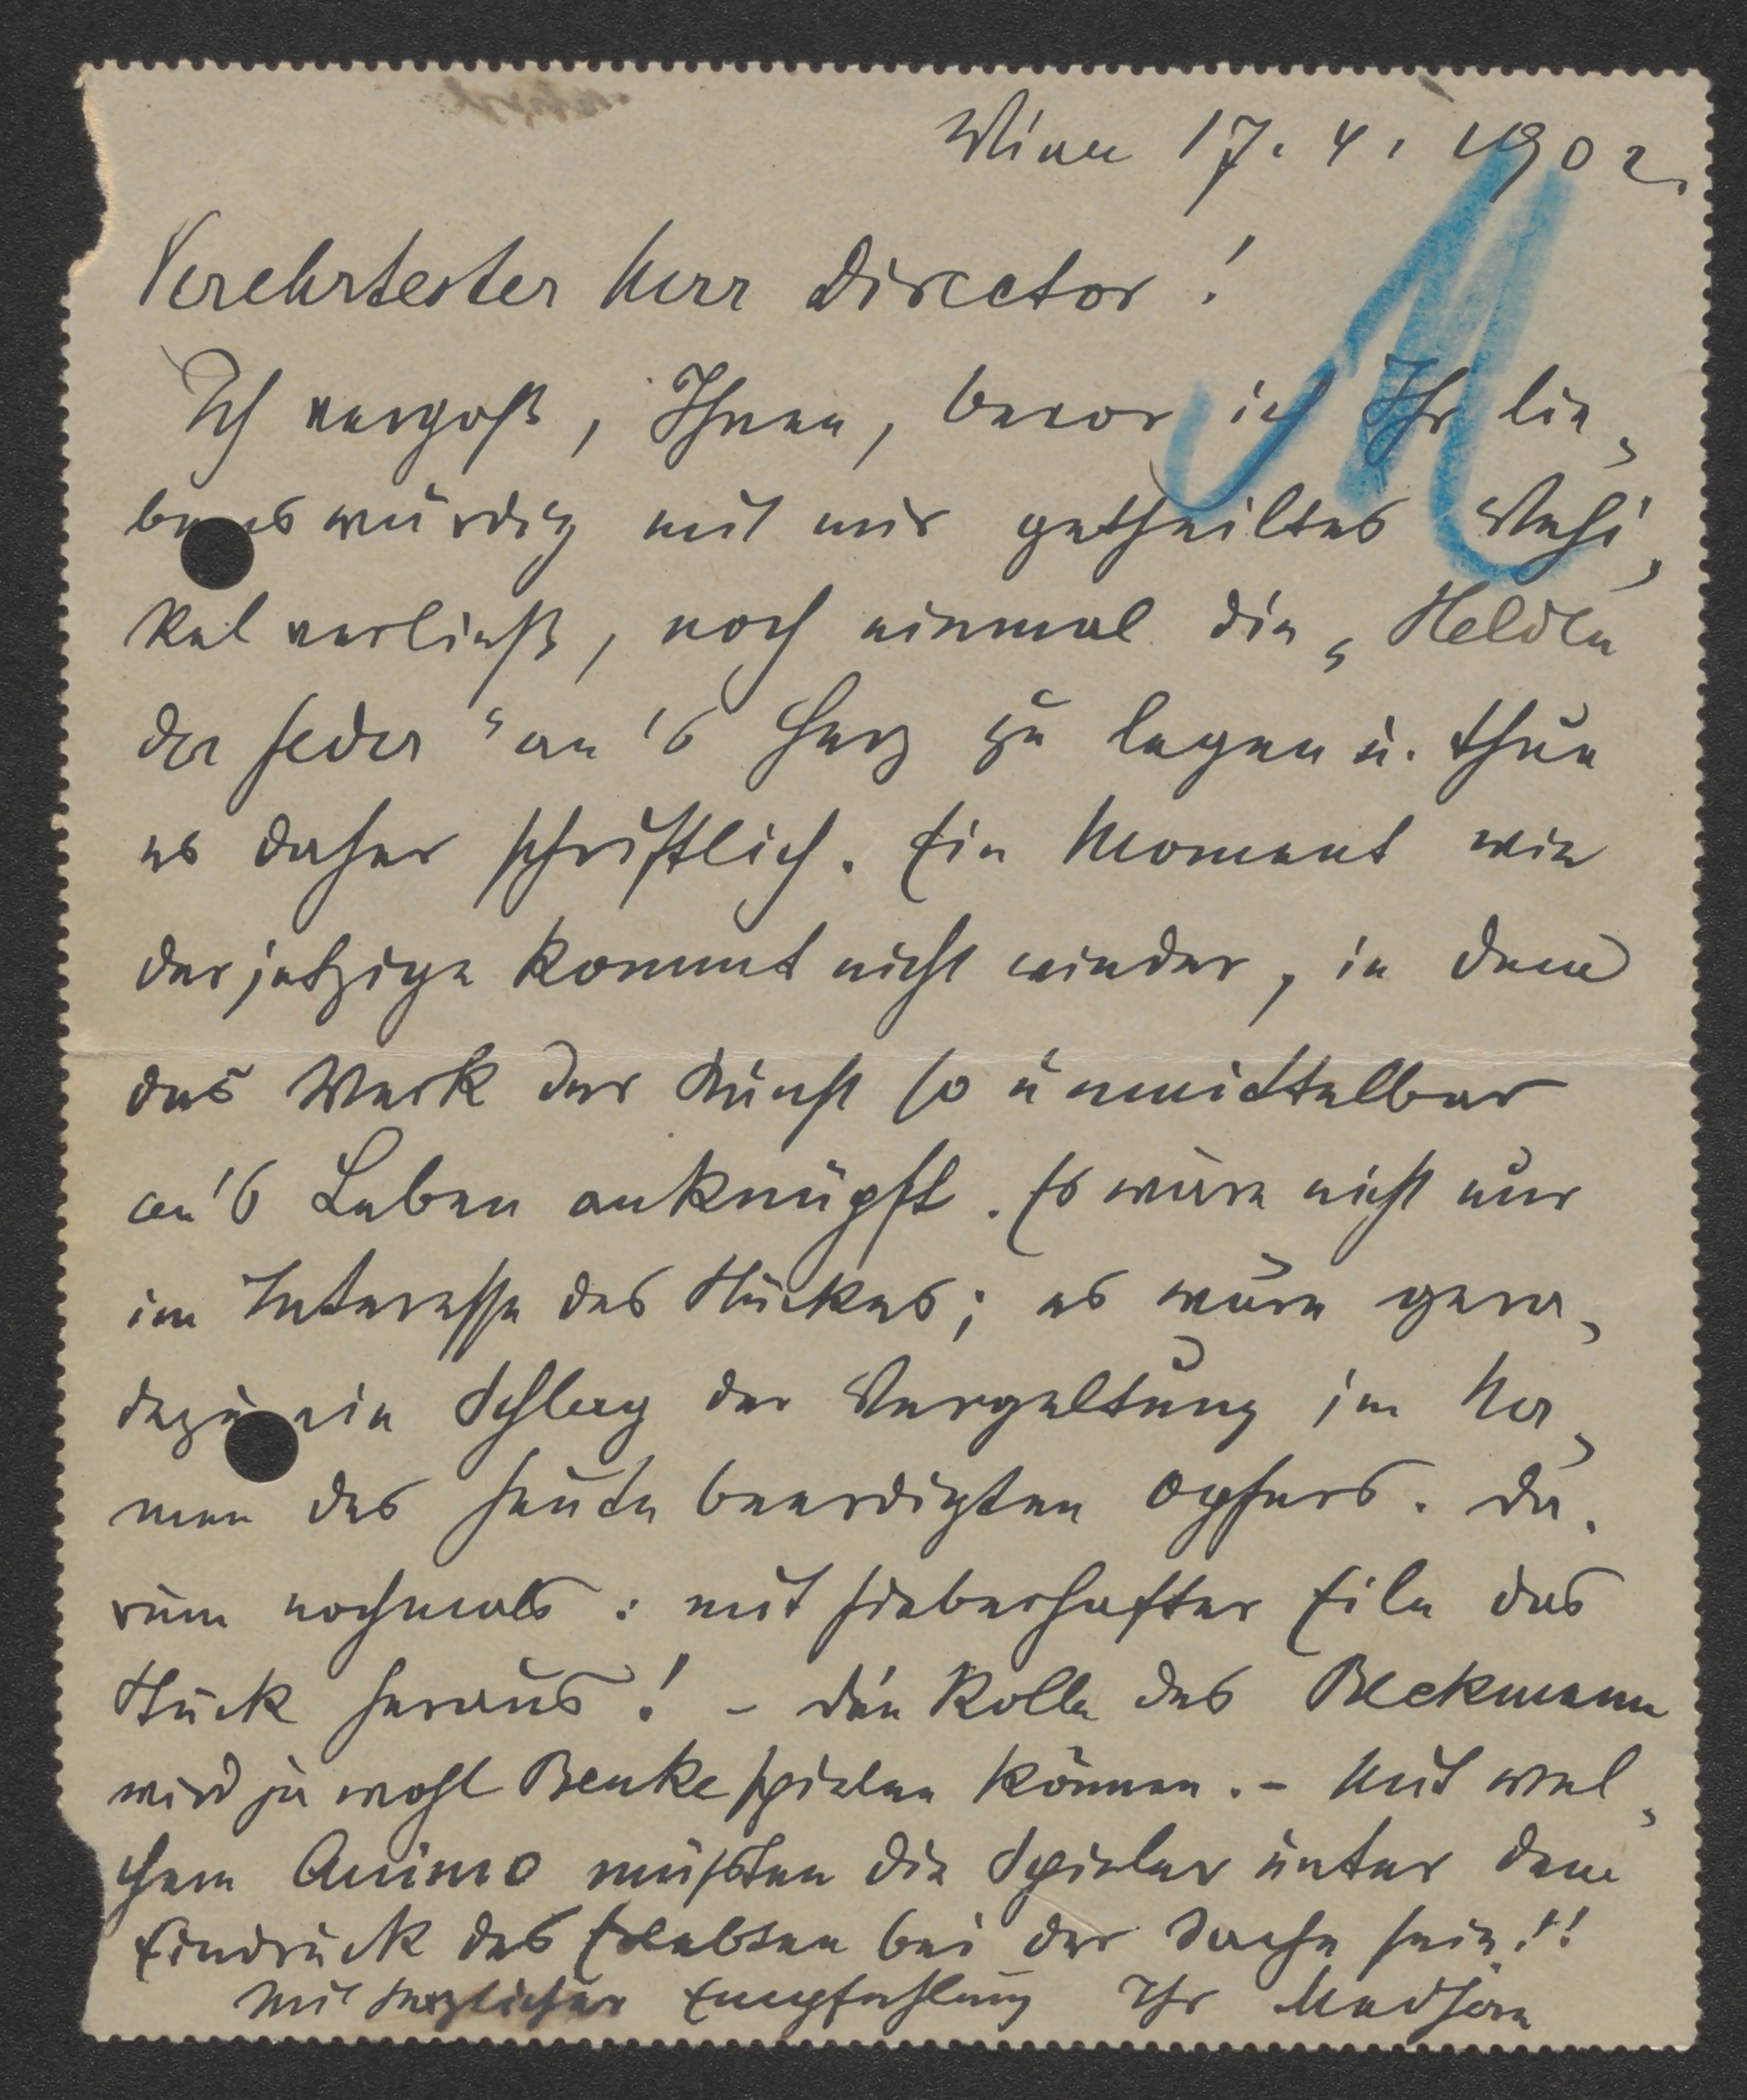 Wien 17. 4. 1902.
Verehrtester Herr Director!
Ich vergaß, Ihnen, bevor ich Ihr lie-
benswürdig mit mir getheiltes Vehi-
kel verließ, noch einmal die „Helden
der Feder“ an's Herz zu legen u. thue
es daher schriftlich. Ein Moment wie
der jetzige kommt nicht wieder, in dem
das Werk der Kunst so unmittelbar
an's Leben anknüpft. Es wäre nicht nur
im Interesse des Stückes; es wäre gera-
dezu ein Schlag der Vergeltung im Na-
men des heute beerdigten Opfers. Da-
rum nochmals: mit fieberhafter Eile das
Stück heraus! – Die Rolle des Beckmann
wird ja wohl Benke spielen können. – Mit wel-
chem Animo müßten die Spieler unter dem
Eindruck des Erlebten bei der Sache sein!!
Mit herzlicher Empfehlung Ihr